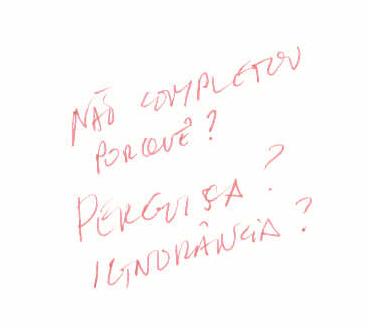 NÃO COMPLETOU
PORQUÊ?
PERGUIÇA?
IGNORÂNCIA?